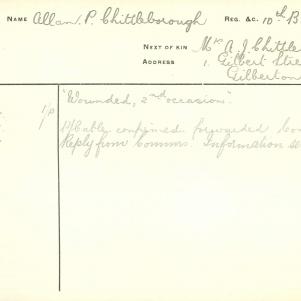 NAME Allan. P. Chittleborough REG. &C. 10th B
NEXT OF KIN Mrs A. J. Chittle
ADDRESS 1, Gilbert Stre
Gilberton
"Wounded, 2nd occasion".
1/p
Cable confirmed forwarded
Reply from Comms. Information